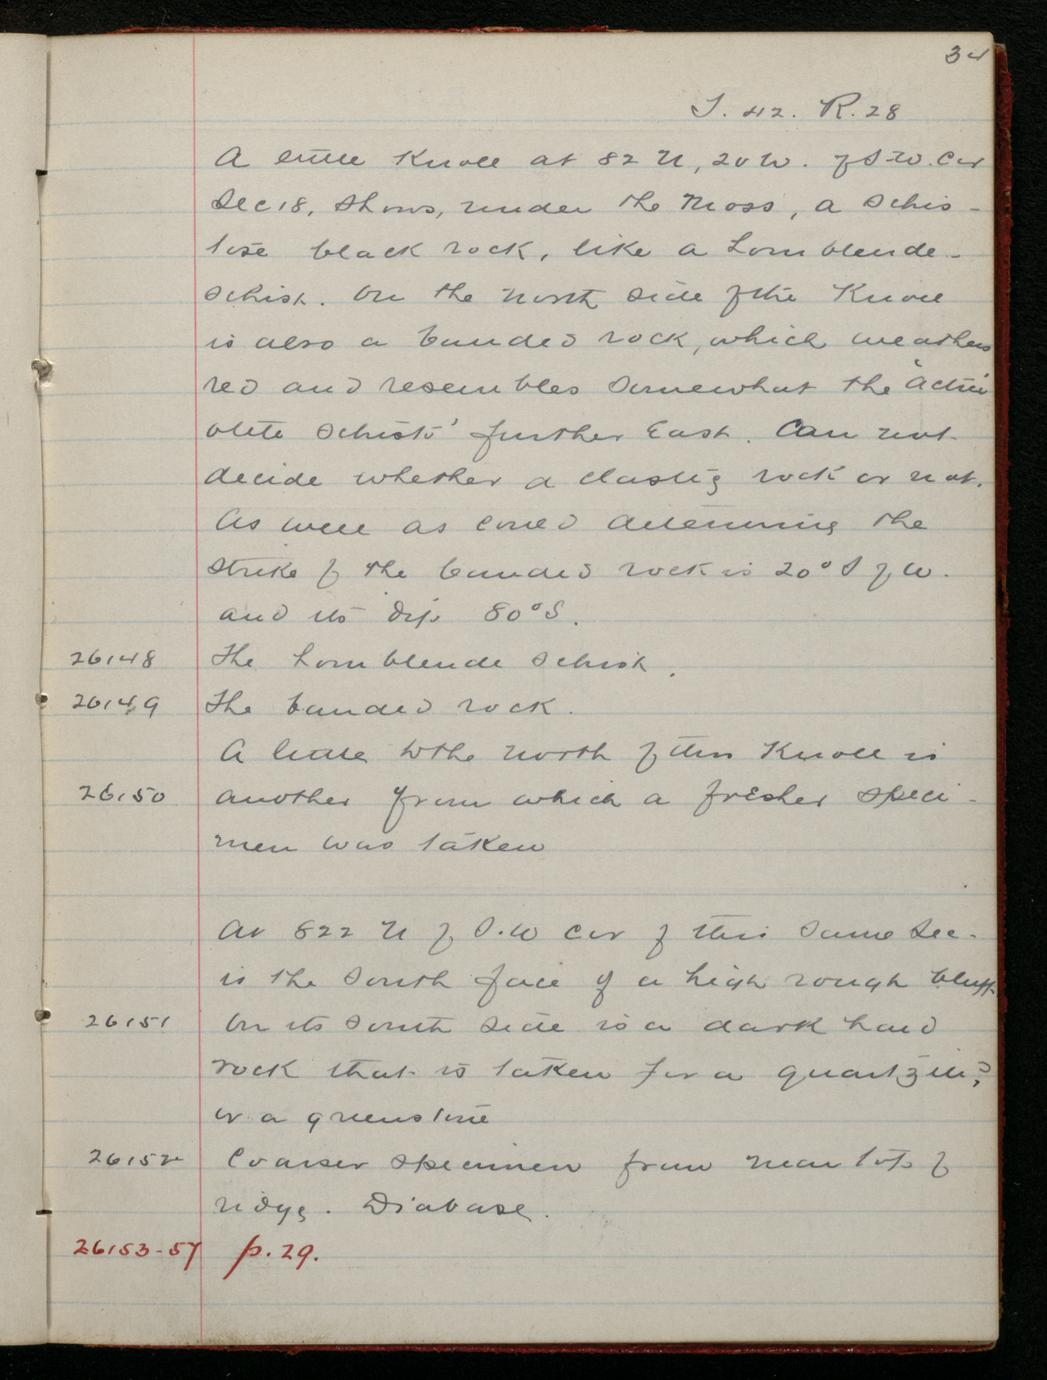 34
T. 42. R. 28
A little Knoll at 82 N, 20 W. of S.W. Cor
Sec 18, shows, under the Moss, a schis-
tose black rock, like a hornblende-
schist. On the north side of the Knoll
is also a banded rock, which weathers
red and resembles somewhat the "actin
olite schists" further East. Can not
decide whether a clastic rock or not.
As well as could determine the
strike of the banded rock is 20° S of W.
and its dip 80° S.
26148 The hornblende schist.
26149 The banded rock.
A little to the north of this Knoll is
26150 another from which a fresher speci-
men was taken
At 822 N of S.W Cor of this same Sec.
is the south face of a high rough bluff.
26151 On its south side is a dark hard
rock that is taken for a quartzite?
or a greenstone
26152 Coarser specimen from near top of
ridge. Diabase.
26153-57 p. 29.